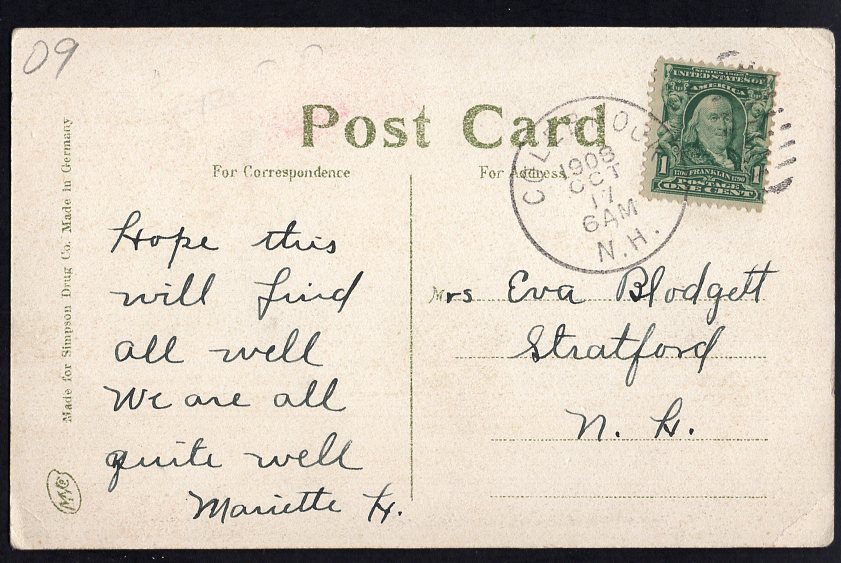 09
Post Card
For Correspondence
For Address.
SERIES 1902
UNITED STATES OF
AMERICA
1 FRANKLIN 1
POSTAGE
ONE CENT
COLEBROOK
1908
OCT
17
6AM
N.H.
Hope this
will find
all well
We are all
quite well
Mariette H.
Mrs Eva Blodgett
Stratford
N. H.
Made for Simpson Drug Co. Made in Germany